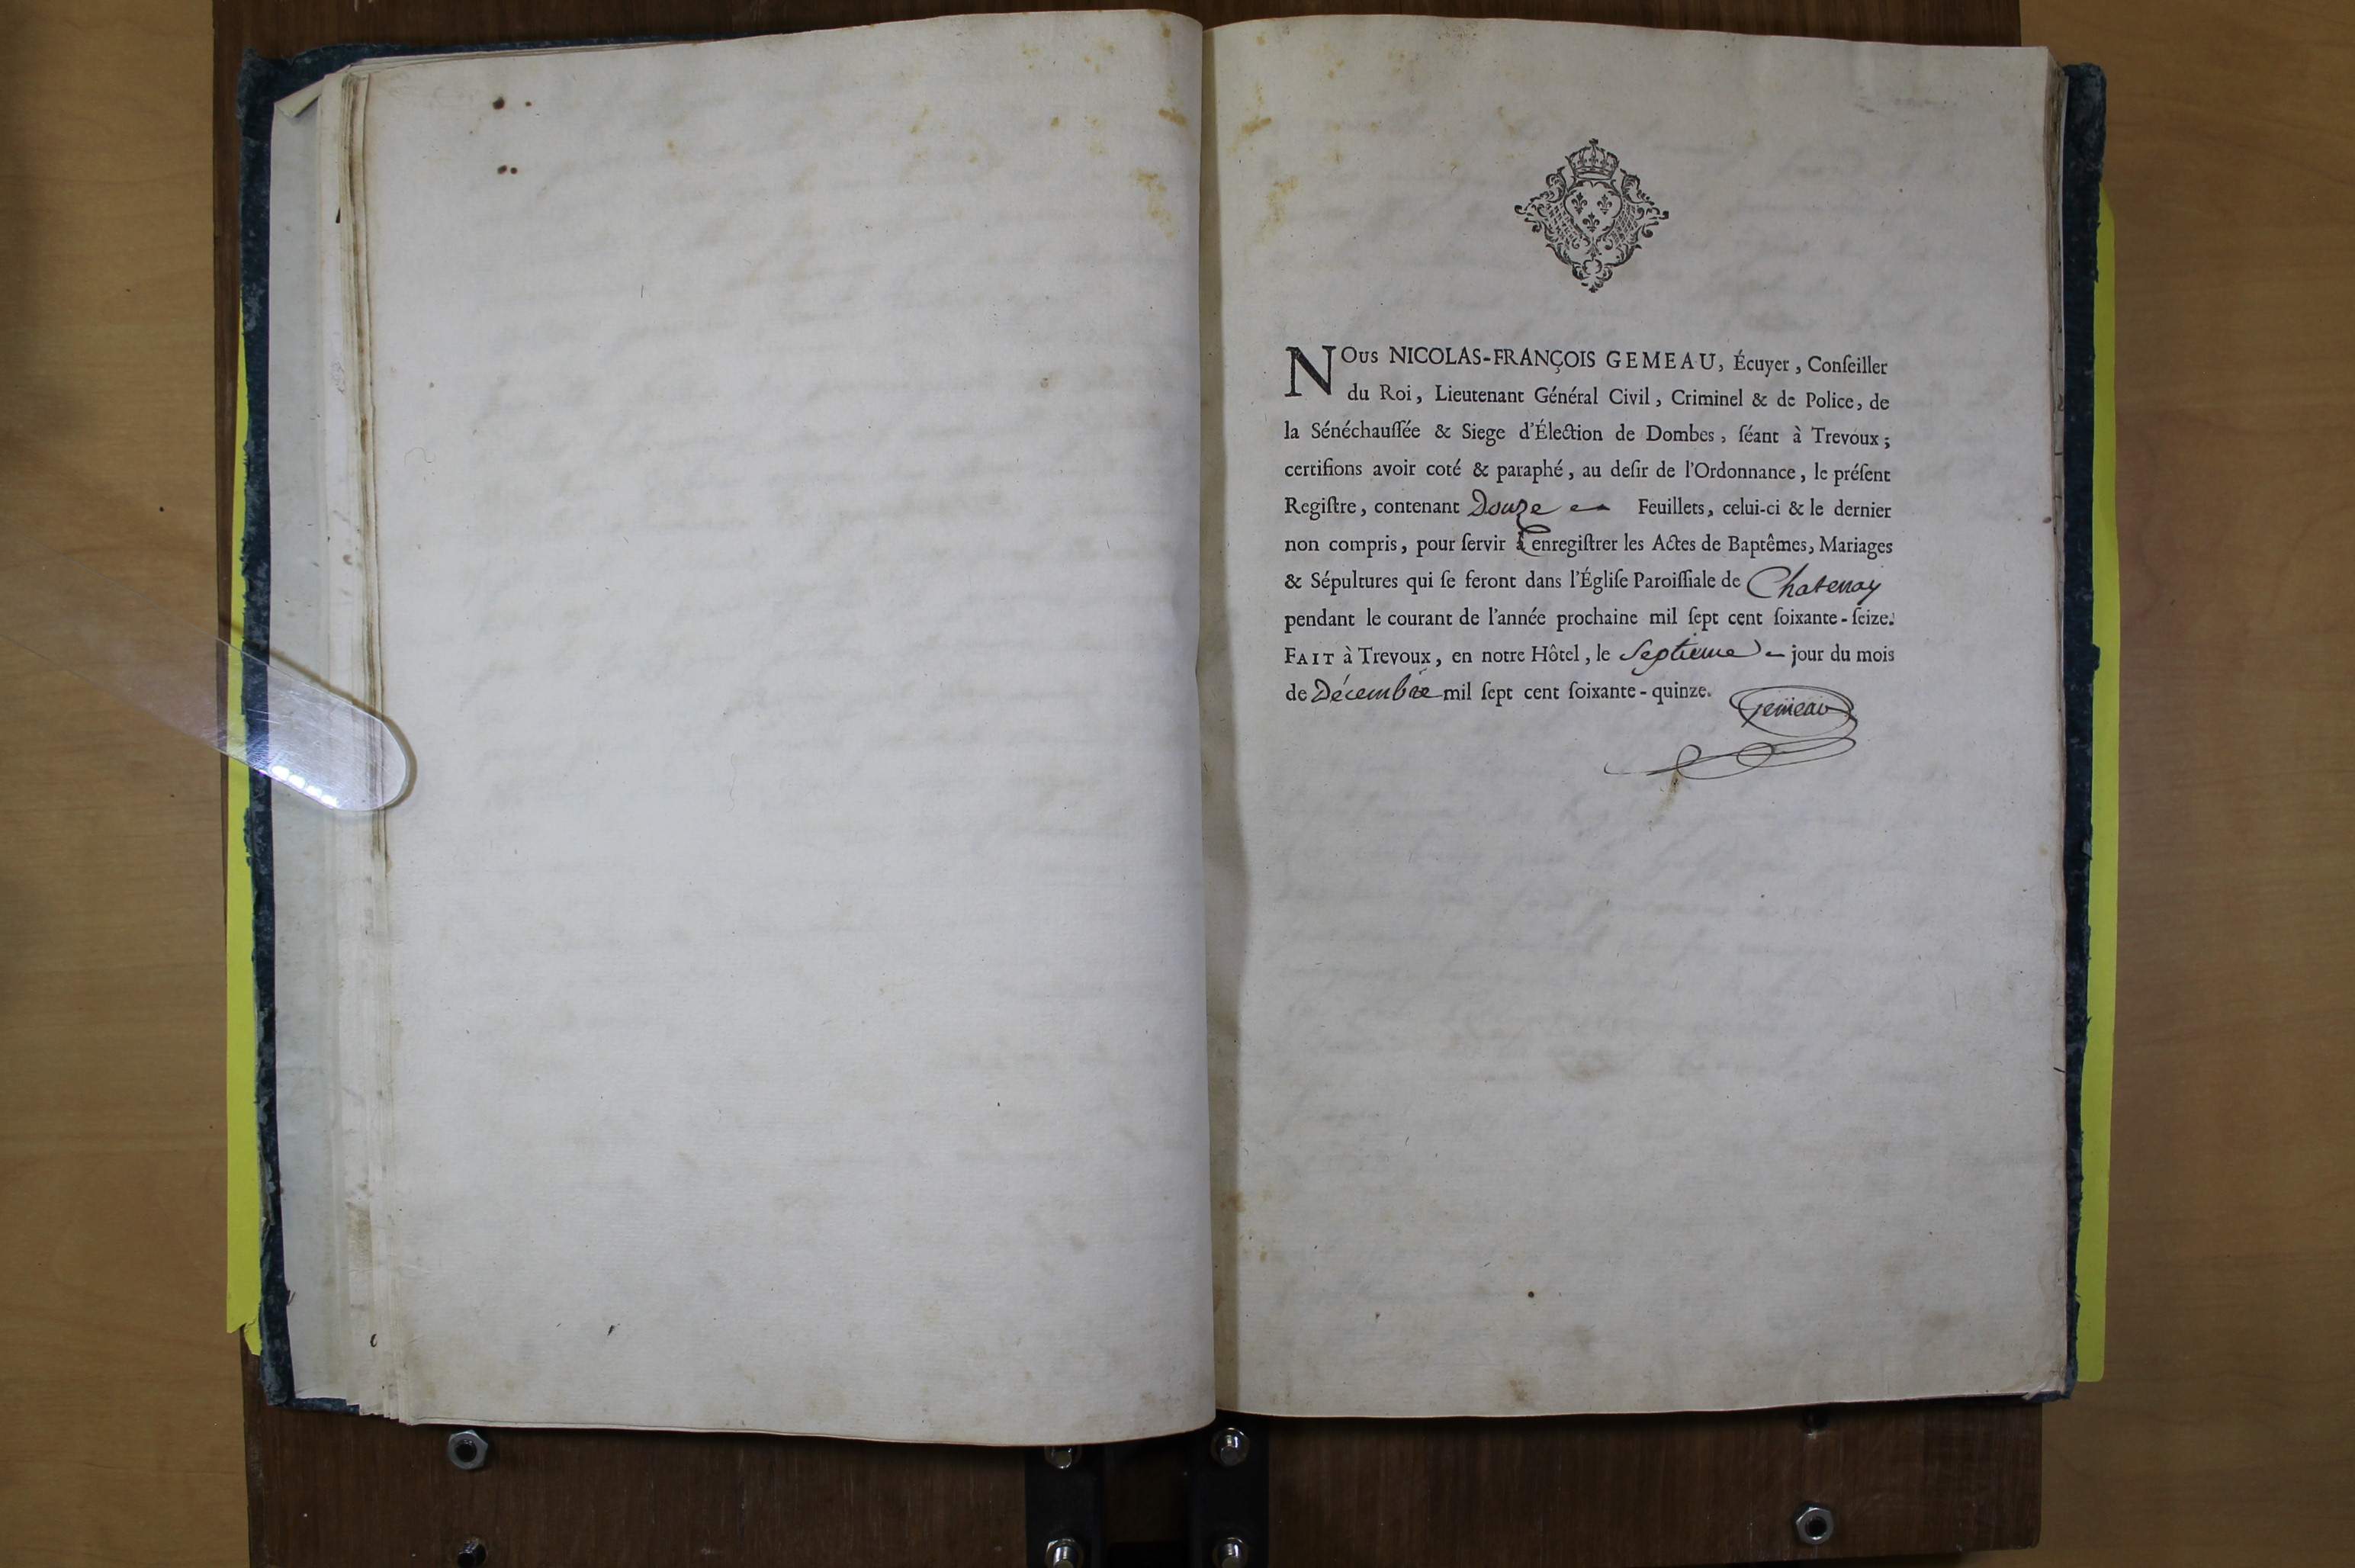 NOus NICOLAS-FRANÇOIS GEMEAU, Écuyer, Conſeiller
du Roi, Lieutenant Général Civil, Criminel & de Police, de
la Sénéchauſſée & Siege d'Élection de Dombes, ſéant à Trevoux;
certifions avoir coté & paraphé, au deſir de l'Ordonnance, le préſent
Regiſtre, contenant Douze Feuillets, celui-ci & le dernier
non compris, pour ſervir à enregiſtrer les Actes de Baptêmes, Mariages
& Sépultures qui ſe feront dans l'Égliſe Paroiſſiale de Chatenay
pendant le courant de l'année prochaine mil ſept cent ſoixante-ſeize.
FAIT à Trevoux, en notre Hôtel, le Septieme jour du mois
de Décembre mil ſept cent ſoixante-quinze.
Gemeau